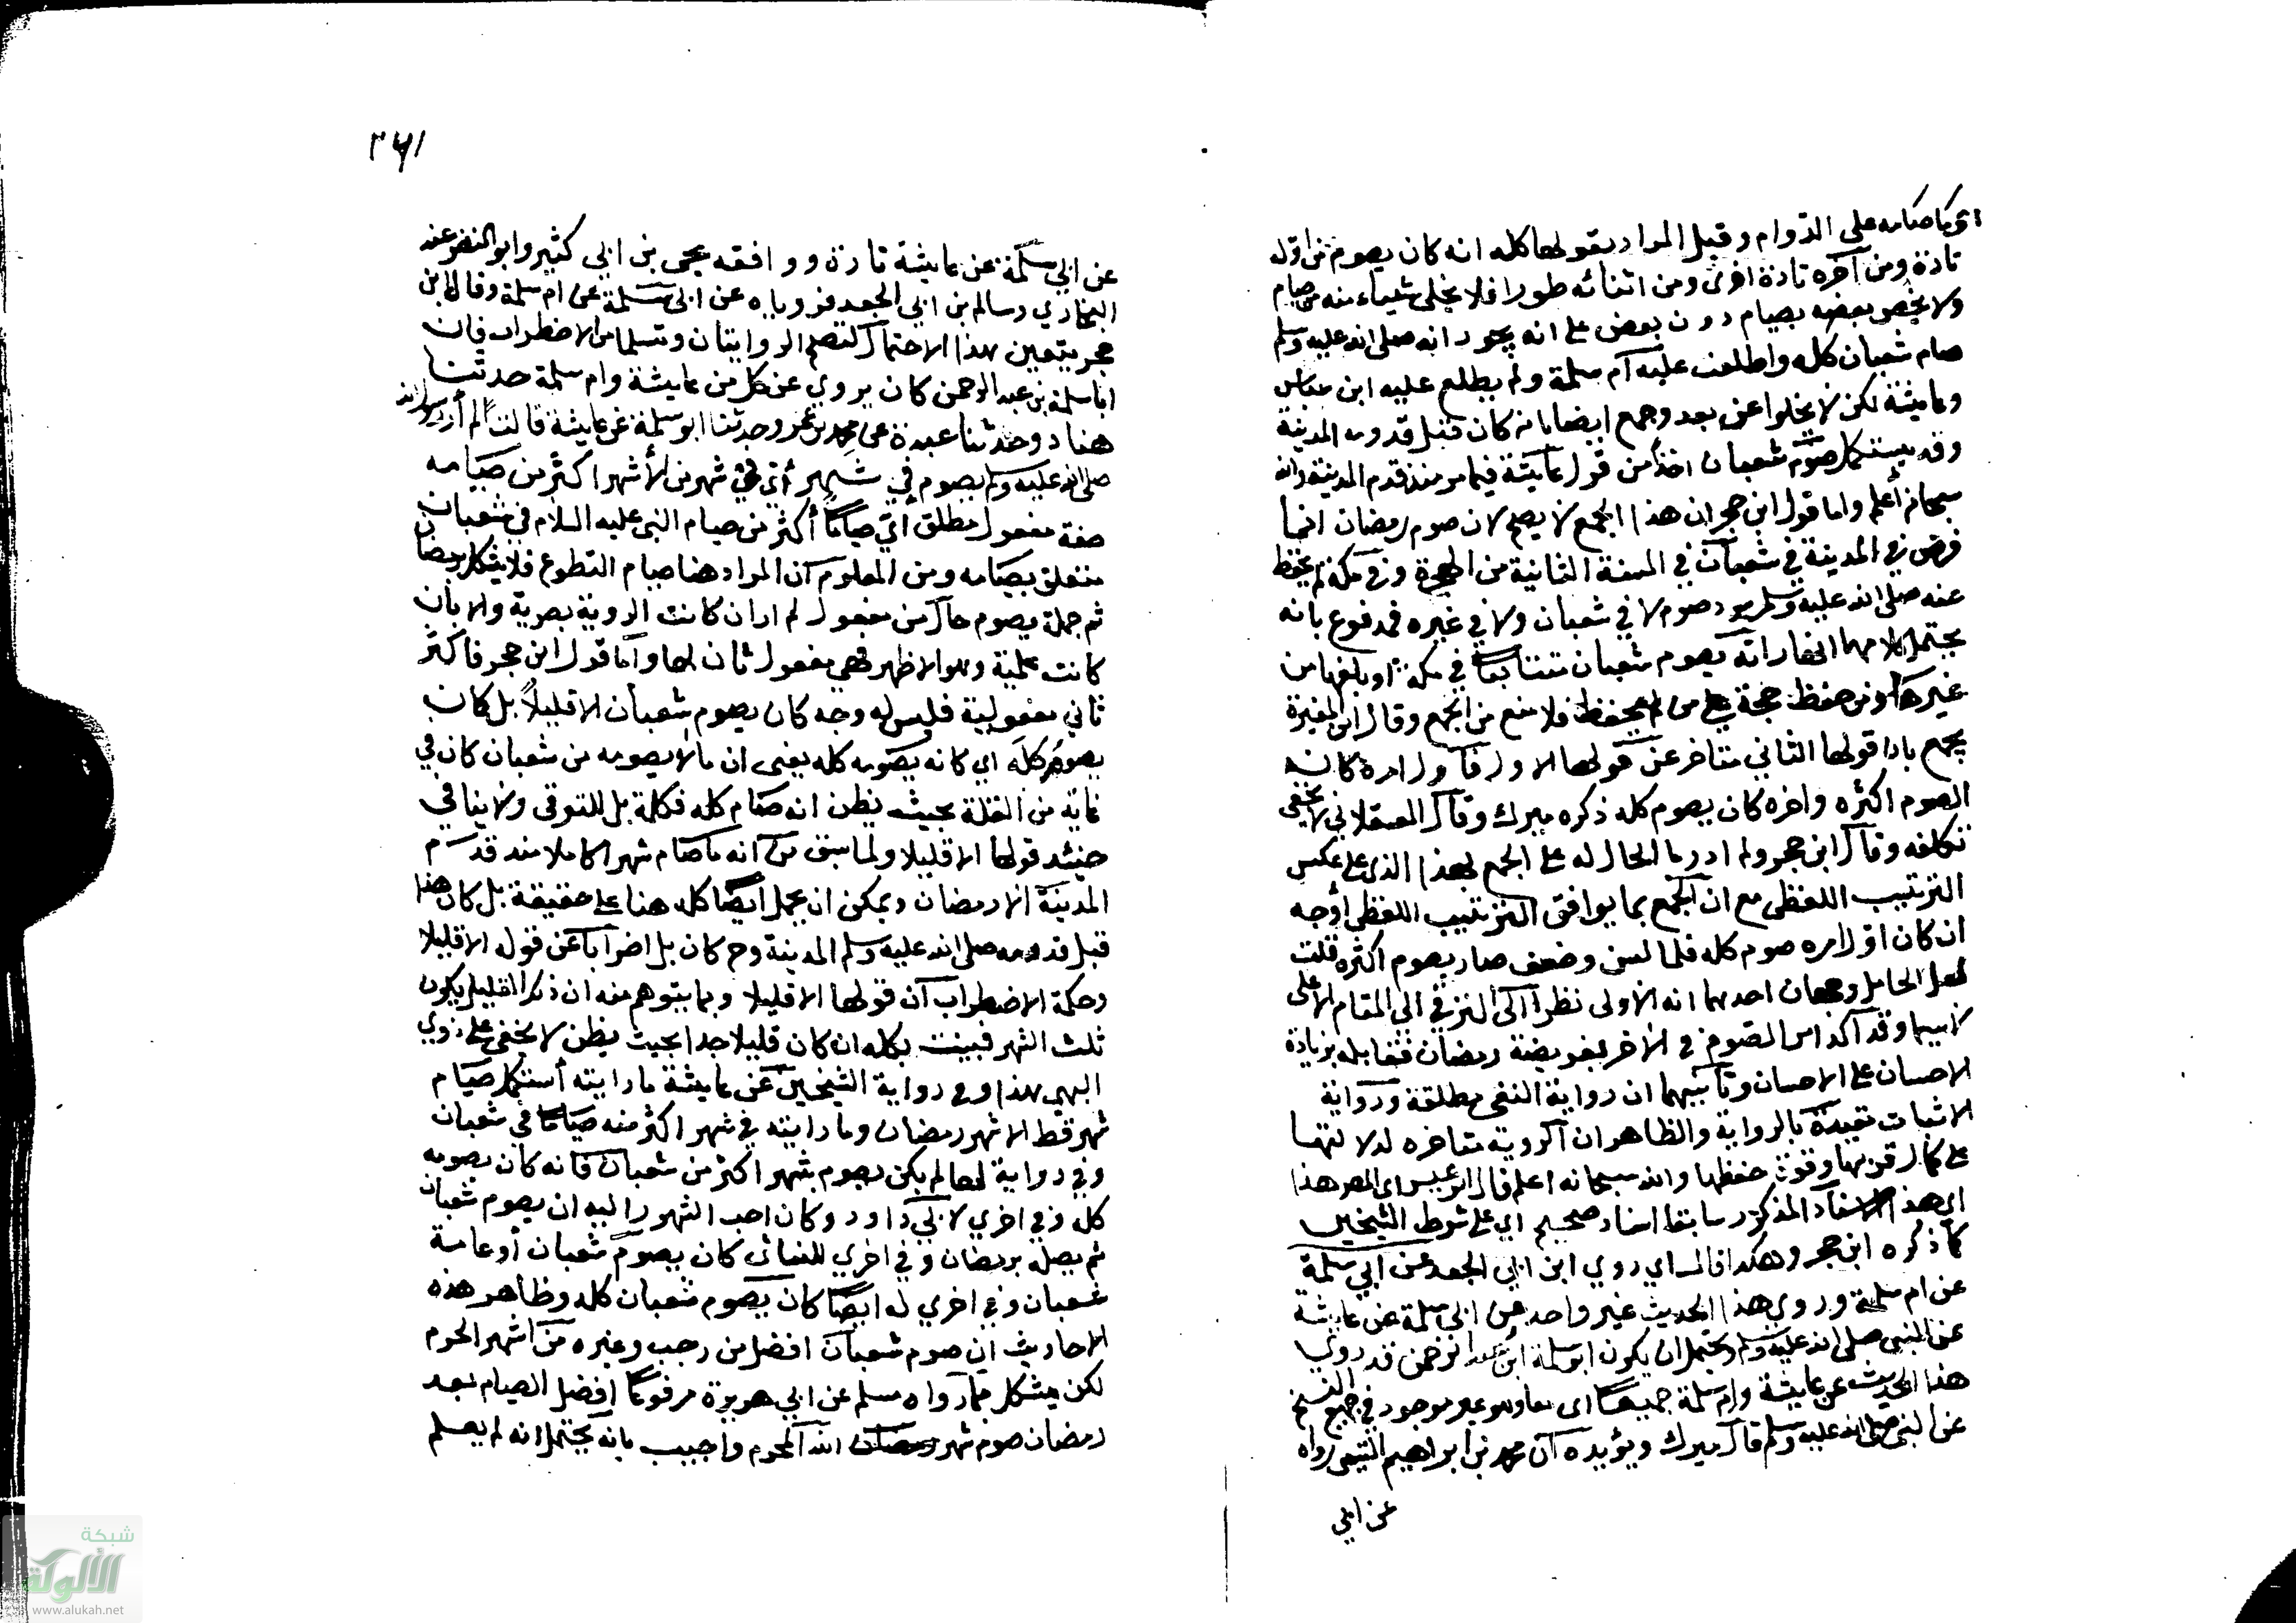 اي ما صامه على الدوام وقيل المراد بقولها كله انه كان يصوم من اوله
تارة ومن آخره تارة اخرى ومن اثنائه طورا فلا يخلى شياء منه من صيام
ولا يخص بعضه بصيام دون بعض على انه يجوز انه صلى الله عليه وسلم
صام شعبان كله واطلعت عليه ام سلمة ولم يطلع عليه ابن عباس
وعايشة لكن لا يخلوا عن بعد وجمع ايضا بانه كان قبل قدومه المدينة
وقد يستكمل صوم شعبان اخذا من قول عايشة فيما مر منذ قدم المدينة والله
سبحانه أعلم واما قول ابن حجر ان هذا الجمع لا يصلح لان صوم رمضان انما
فرض في المدينة في شعبان في السنة الثانية من الهجرة وفي مكة لم يحفظ
عنه صلى الله عليه وسلم صوم لا في شعبان ولا في غيره فمدفوع بانه
يحتمل انه يصوم شعبان متتابعا في مكة او بلغها من
غيرها ومن حفظ حجة على من لم يحفظ فلا منع من الجمع وقال ابن المغيرة
يجمع بان قولها الثاني متاخر عن قولها الاول فاول امره كان
الصوم اكثره واخره كان يصوم كله ذكره ميرك وقال العسقلاني لا يخفى
تكلفه وقال ابن حجر ولم ادر ما الحال له على الجمع بهذا الذي على عكس
الترتيب اللفظي مع ان الجمع بما يوافق الترتيب اللفظي اوجه
ان كان اول امره صوم كله فلما اسن وضعف صار يصوم اكثره قلت
لعل الحامل وجهان احدهما انه الاولى نظرا الى الترقي الى المقام الاعلى
لا سيما وقد آكد امر الصوم في الاخر بفريضة رمضان فتقابله بزيادة
الاحسان على الاحسان وثانيهما ان رواية النفي مطلقة ورواية
الاثبات مقيدة بالرواية والظاهر ان الروية متاخره لدلالتها
على كمال قربها وقوة حفظها والله سبحانه اعلم قال ابو عيسى اي المصر هذا
اي هذا الاسناد المذكور سابقا اسناد صحيح اي على شرط الشيخين
كما ذكره ابن حجر وهكذا قال اي روي ابن ابي الجعد عن ابي سلمة
عن ام سلمة وروى هذا الحديث غير واحد عن ابي سلمة عن عايشة
عن النبي صلى الله عليه وسلم ويحتمل ان يكون ابو سلمة ابن عبد الرحمن قد روي
هذا الحديث عن عايشة وام سلمة جميعا اى معا وهو غير موجود في جميع النسخ
عن النبي صلى الله عليه وسلم قال ميرك ويؤيده ان محمد بن ابراهيم التيمي رواه
عن ابي
٢٦١
عن ابي سلمة عن عايشة تارة ووافقه يحيى بن ابي كثير وابو النضر عند
البخاري وسالم بن ابي الجعد فروياه عن ابي سلمة عن ام سلمة وقال ابن
حجر يتعين هذا الاحتمال لتصلح الروايتان وتسلما من الاضطراب فان
ابا سلمة بن عبد الرحمن كان يروي عن كل من عايشة وام سلمة حدثنا
هناد وحدثنا عبدة عن محمد بن عمرو حدثنا ابو سلمة عن عايشة قالت لم أر رسول الله
صلى الله عليه وسلم يصوم في شهر أي في شهر من الأشهر اكثر من صيامه
صفة مفعول مطلق اي صياما أكثر من صيام النبي عليه السلام في شعبان
متعلق بصيامه ومن المعلوم ان المراد هنا صيام التطوع فلا يشكل رمضان
ثم جملة يصوم حال من مفعول لم ار ان كانت الروية بصرية والا بان
كانت علمية وهو الاظهر فهي مفعول ثان لها واما قول ابن حجر فاكثر
ثاني مفعولية فليس له وجه كان يصوم شعبان الا قليلاً بل كان
يصومه كله اي كانه يصومه كله يعنى ان ما لا يصومه من شعبان كان في
غاية من القلة بحيث يظن انه صام كله فكلمة بل للترقى ولا ينافي
حينئذ قولها الا قليلا ولما سبق من انه ما صام شهرا كاملا منذ قدم
المدينة الا رمضان ويمكن ان يحمل ايضا كله هنا على حقيقة بل كان هذا
قبل قدومه صلى الله عليه وسلم المدينة وح كان بل اضرابا عن قوله الا قليلا
وحكمة الاضطراب ان قولها الا قليلا ربما يتوهم منه ان ذلك القليل يكون
ثلث الشهر فبينت بكله ان كان قليلا جدا بحيث يظن لا يخفى على ذوي
النهي هذا وفي رواية الشيخين عن عايشة ما رايته أستكمل صيام
شهر قط الا شهر رمضان وما رايته في شهر اكثر منه صياما في شعبان
وفي رواية لهما لم يكن يصوم شهر اكثر من شعبان فانه كان يصومه
كل وفي اخري لابي داود وكان احب الشهور اليه ان يصوم شعبان
ثم يصله برمضان وفي اخري للنسائى كان يصوم شعبان أو عامة
شعبان وفي اخري له ايضا كان يصوم شعبان كله وظاهر هذه
الاحاديث ان صوم شعبان افضل من رجب وغيره من اشهر الحرم
لكن يشكل بما رواه مسلم عن ابي هريرة مرفوعا افضل الصيام بعد
رمضان صوم شهر الله المحرم واجيب بانه يحتمل انه لم يعلم
شبكة
الألوكة
www.alukah.net